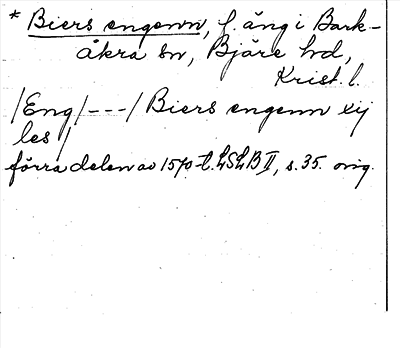 * Biers engenn, f. äng i Bark-
åkra sn, Bjäre hd,
Krist. l.
/Eng/---/Biers engenn xij
les/
förra delen av 1570-t. LSLB II, s. 35. orig.